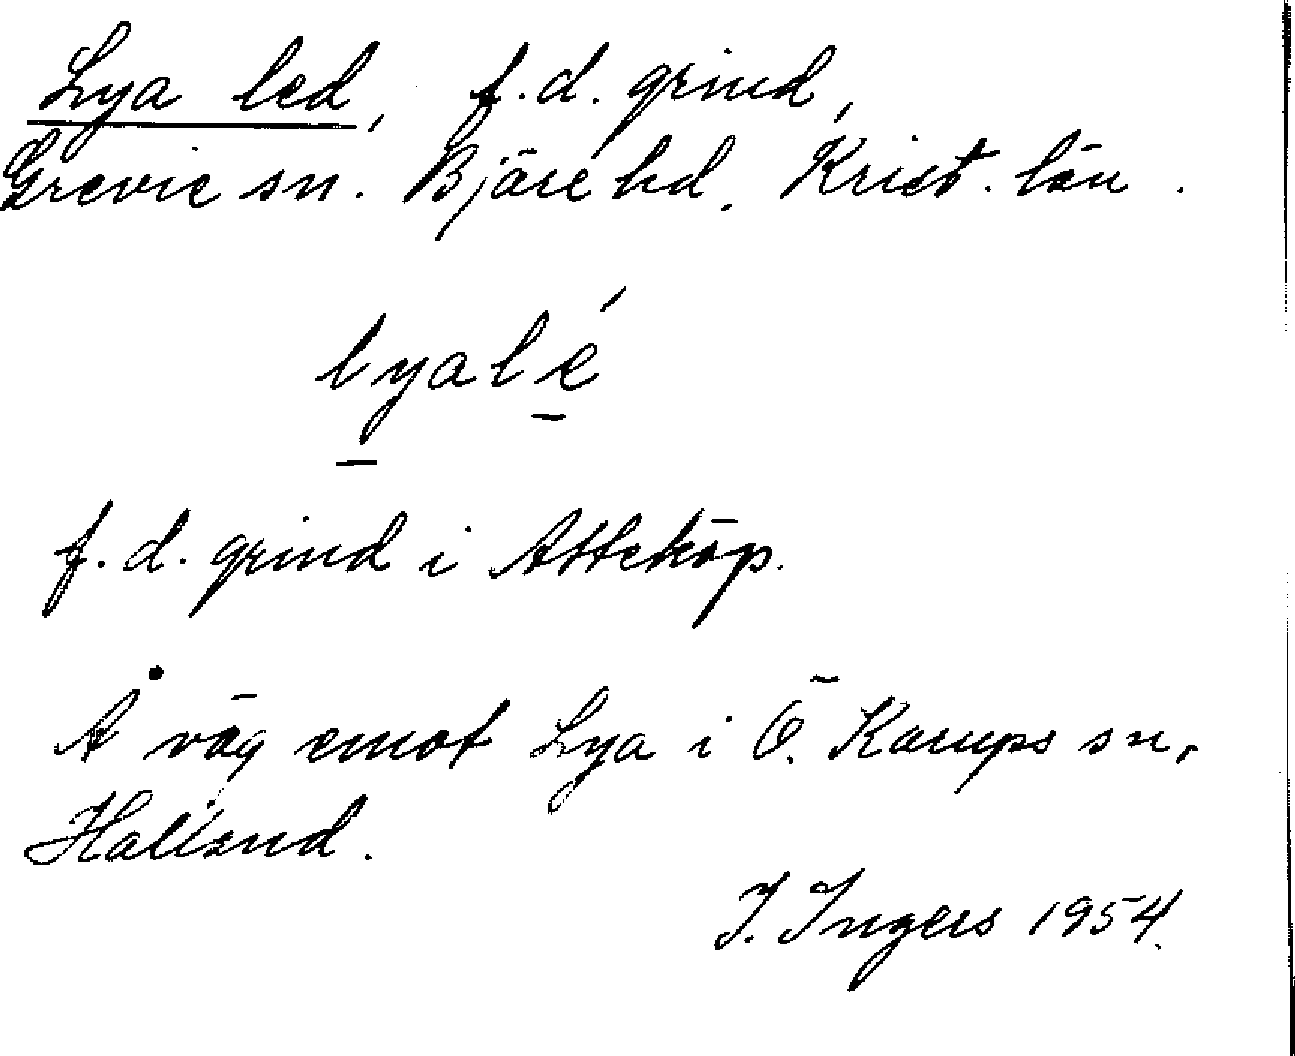 Lya led, f.d. grind,
Grevie sn. Bjäre hd. Krist. län.
lyalé
f.d. grind i Atteköp.
Å väg emot Lya i Ö. Karups sn,
Halland.
I. Ingers 1954.